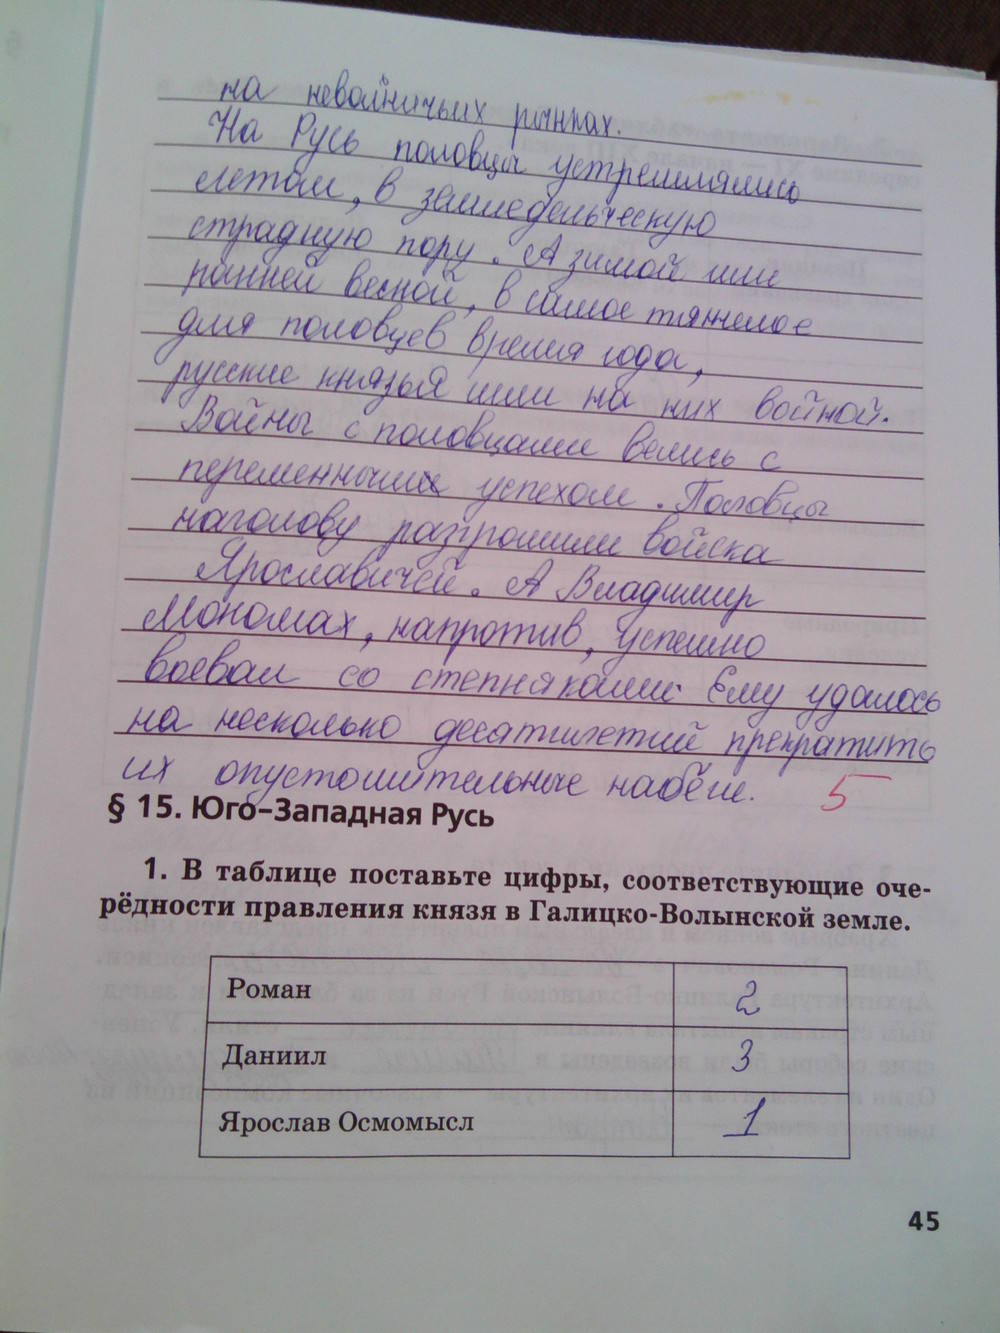 на невольничьих рынках.
На Русь половцы устремлялись
летом, в земледельческую
страдную пору. А зимой или
ранней весной, в самое тяжелое
для половцев время года,
русские князья шли на них войной.
Войны с половцами велись с
переменным успехом. Половцы
наголову разгромили войска
Ярославичей. А Владимир
Мономах, напротив, успешно
воевал со степняками. Ему удалось
на несколько десятилетий прекратить
их опустошительные набеги.
5
§ 15. Юго-Западная Русь
1. В таблице поставьте цифры, соответствующие оче-
рёдности правления князя в Галицко-Волынской земле.
Роман 2
Даниил 3
Ярослав Осмомысл 1
45